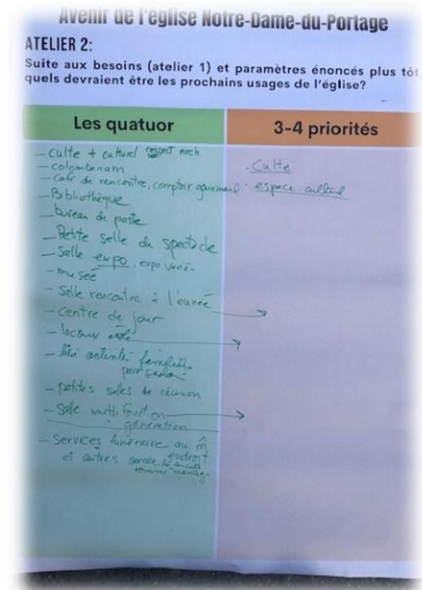 Avenir de l'église Notre-Dame-du-Portage
ATELIER 2:
Suite aux besoins (atelier 1) et paramètres énoncés plus tôt,
quels devraient être les prochains usages de l'église?
Les quatuor
3-4 priorités
- culte + culturel respect arch.
- colombarium
- café de rencontre, comptoir gourmand
- Bibliothèque
- bureau de poste
- Petite salle de spectacle
- salle expo, expo
- musée
- salle rencontre à l'année
- centre de jour
- locaux
- lieu activités
- petites salles de réunion
- salle multi fonction
génération
- services funéraire au m̂
endroit
et autres
. Culte
. espace culturel